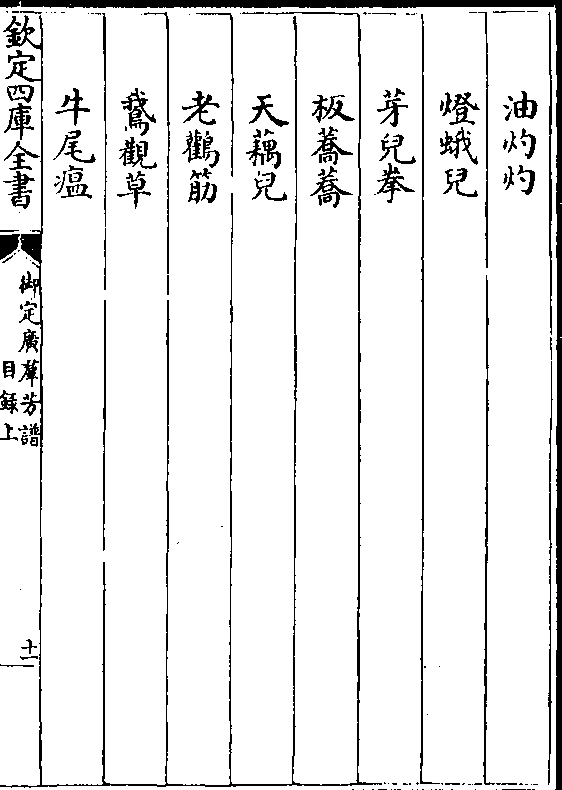 油灼灼
燈蛾兒
芽兒拳
板蕎蕎
天藕兒
老鸛筋
鵞觀草
牛尾瘟
欽定四庫全書
御定廣羣芳譜
目錄上
十一